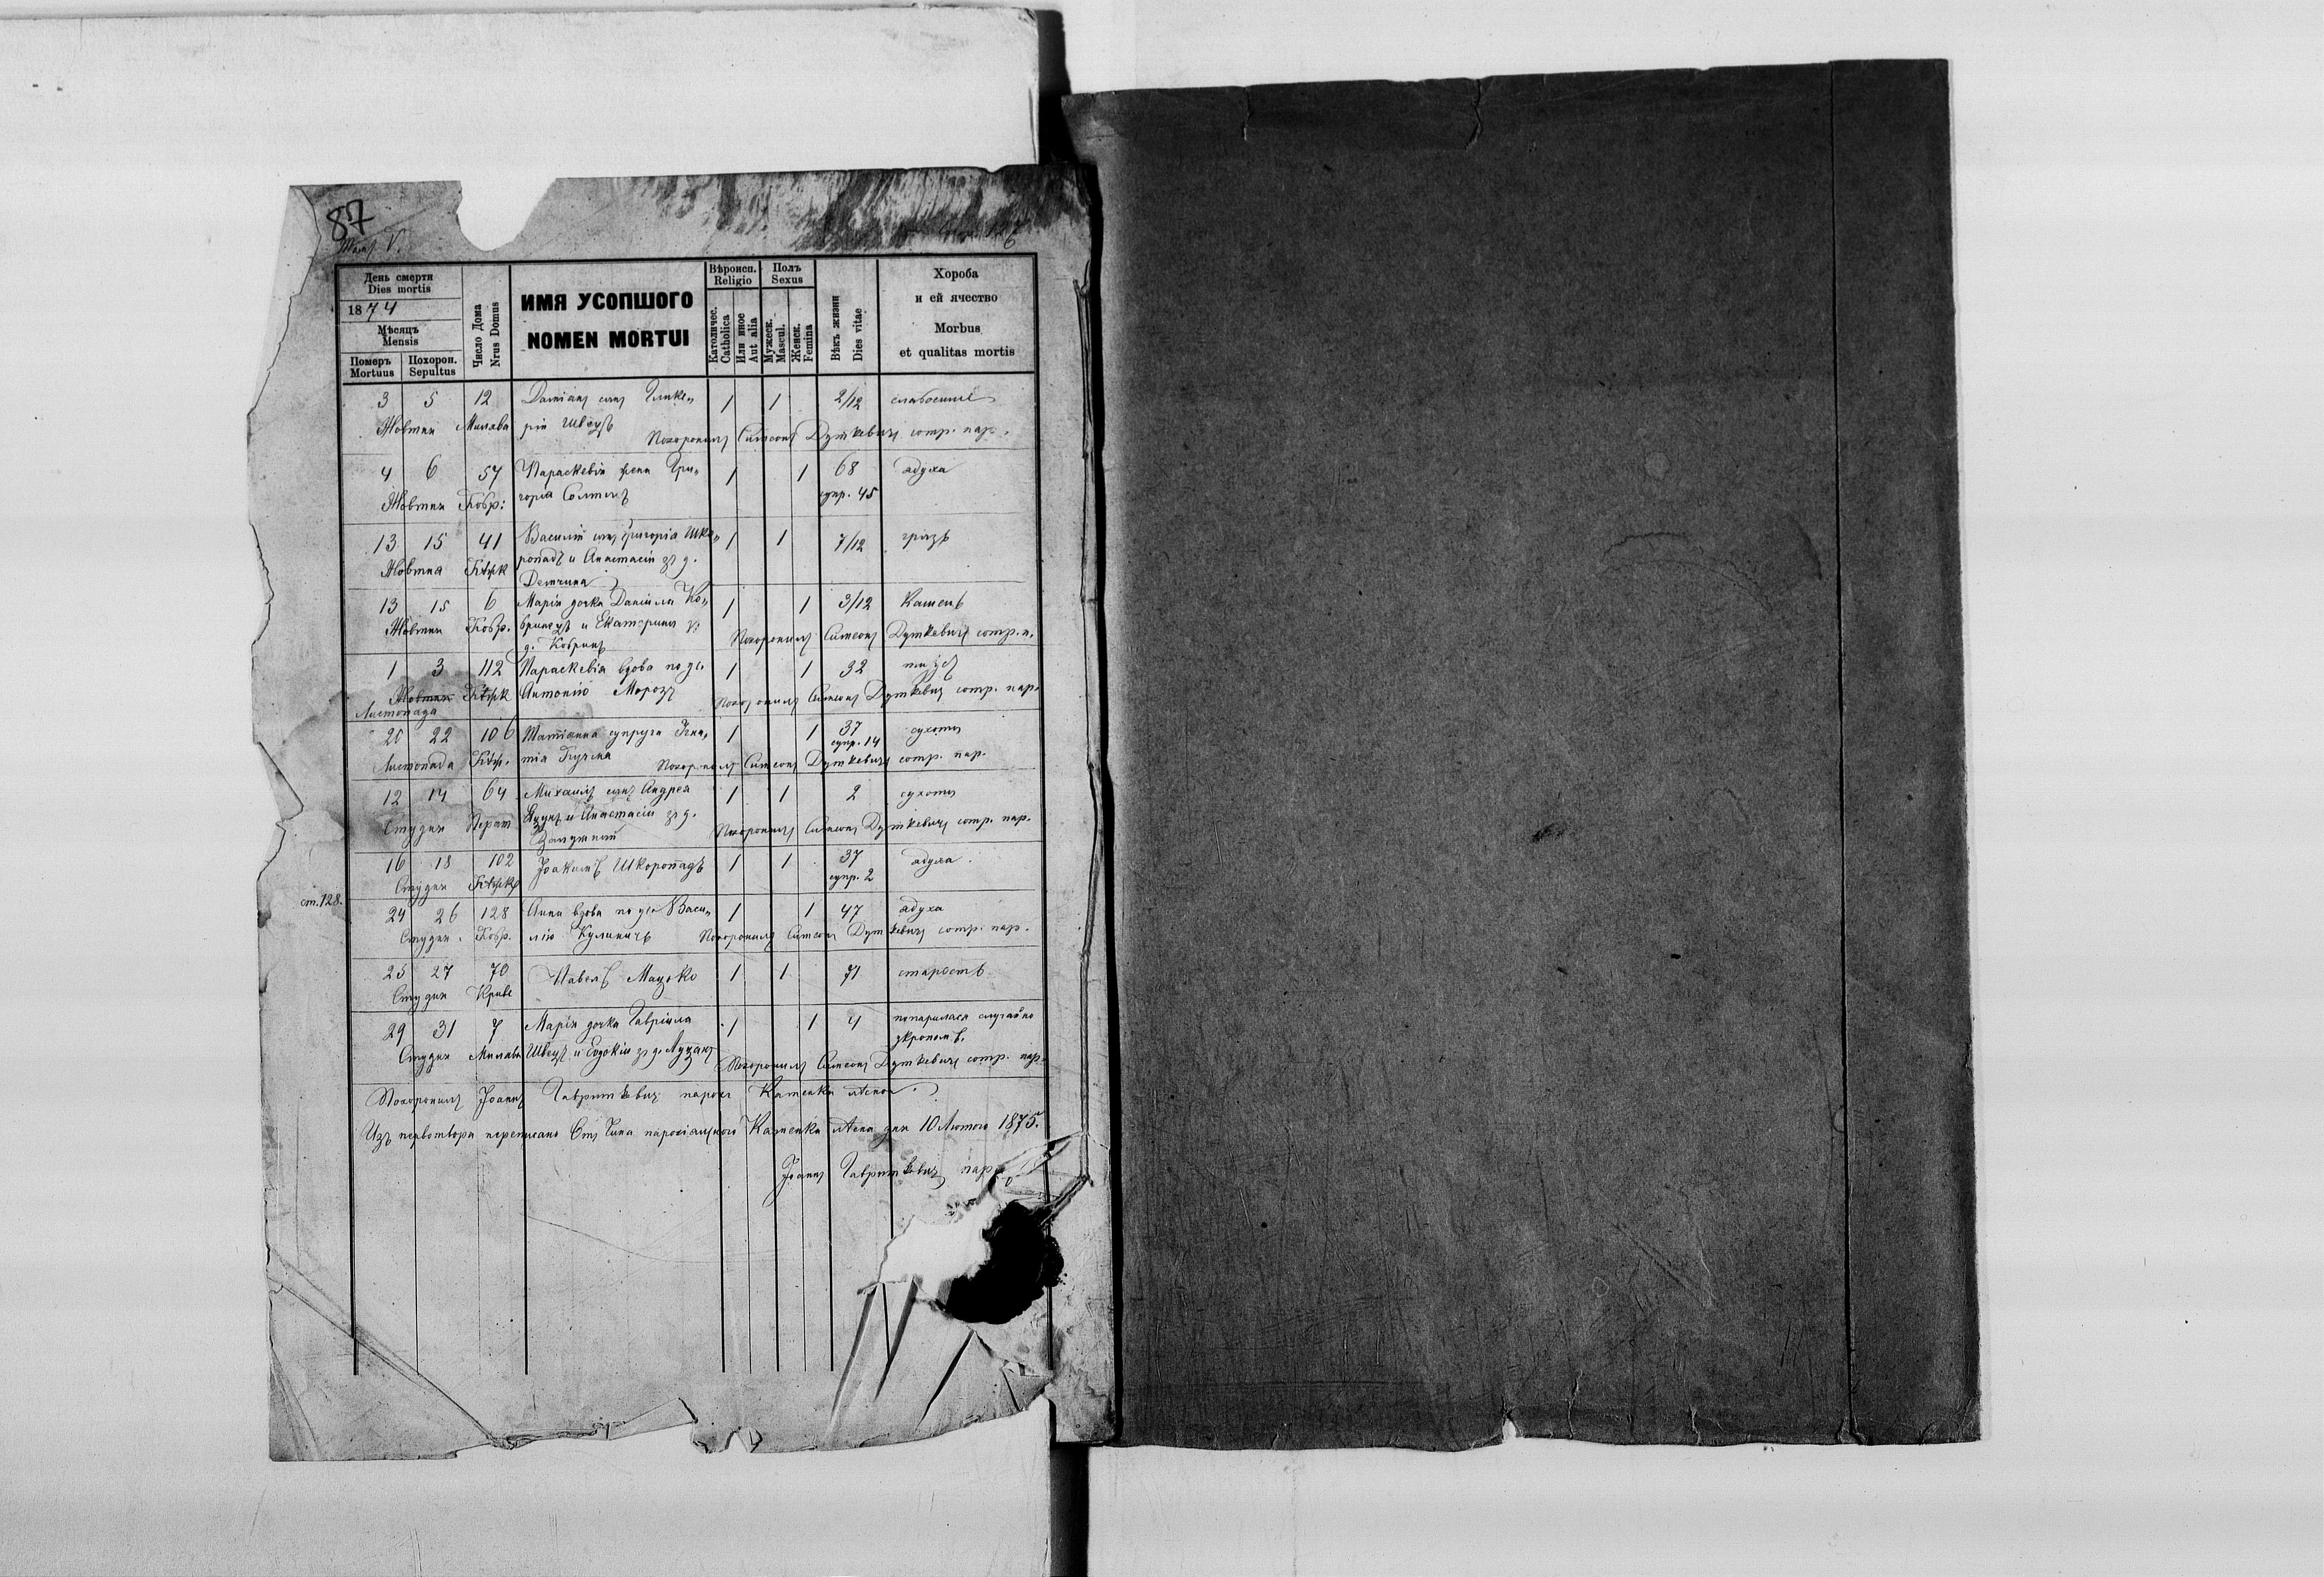 87
Томъ V.
День смерти
Dies mortis
1874
Мѣсяцъ
Mensis
Померъ
Mortuus
Похорон.
Sepultus
Число Дома
Nrus Domus
ИМЯ УСОПШОГО
NOMEN MORTUI
Вѣроисп.
Religio
Католичес.
Catholica
Или иное
Aut alia
Полъ
Sexus
Мужеск.
Mascul.
Женск.
Femina
Вѣкъ жизни
Dies vitae
Хороба
и ей ячество
Morbus
et qualitas mortis
3 5 12 Даміанъ сынъ Глике„ 1 1 2/12
Жовтня Милава рія Швецъ
Похоронилъ Симеонъ Дуткевичъ сотр. пар.
4 6 57 Параскевія жена Гри„ 1 1 68 адуха
Жовтня Кобр: горія Солтыс супр. 45
13 15 41 Василій сынъ Григорія Шко„ 1 1 7/12 грызь
Жовтня ропадъ и Анастасіи зъ д.
13 15 6 Марія дочка Даніила Ко„ 1 1 3/12 Кашель
Жовтня Кобр. и Екатерины
д. Кобринъ
Похоронилъ Симеонъ Дуткевичъ сотр. п.
1 3 112 Параскевія вдова по 1 1 32
Жовтня Антонію Морозъ
Листопада
Похоронилъ Симеонъ Дуткевичъ сотр. пар.
20 22 106 Татіанна супруга Игна„ 1 1 37 сухоты
супр. 14
Листопада тія
Похоронилъ Симеонъ Дуткевичъ сотр. пар.
12 14 64 Михаилъ сынъ Андрея 1 1 2 сухоты
Студня и Анастасіи зъ д.
Похоронилъ Симеонъ Дуткевичъ сотр. пар.
16 18 102 Іоакимъ Шкоропадъ 1 1 37 адуха
Студня супр. 2
ст. 128.
24 26 128 Анна вдова по Васи„ 1 1 47 адуха
Студня Кобр. лію Куликичъ
Похоронилъ Симеонъ Дуткевичъ сотр. пар.
25 27 70 Павелъ Мацько 1 1 71 старость
Студня Криве
29 31 7 Марія дочка Гавріила 1 1 4 попарилася случайно
Студня Милава Швецъ и Евдокіи зъ д. Луцакъ окропомъ.
Похоронилъ Симеонъ Дуткевичъ сотр. пар.
Похоронилъ Іоаннъ Гавришкевичъ парохъ Каменки лѣсной.
Изъ первотвора переписано Отъ Чина парохіального Каменка лѣсна дня 10 Лютого 1875.
Іоаннъ Гавришкевичъ